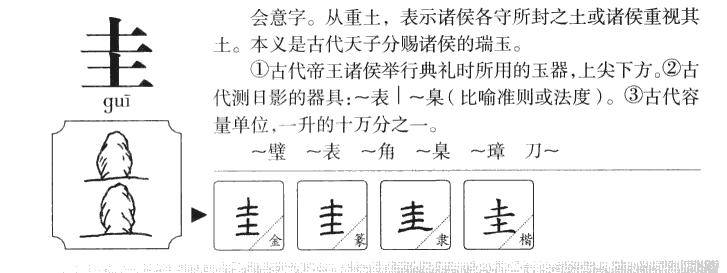 圭
guī
会意字。从重土，表示诸侯各守所封之土或诸侯重视其
土。本义是古代天子分赐诸侯的瑞玉。
①古代帝王诸侯举行典礼时所用的玉器，上尖下方。②古
代测日影的器具：～表｜～臬（比喻准则或法度）。③古代容
量单位，一升的十万分之一。
～璧　～表　～角　～臬　～璋　刀～
圭 金 圭 篆 圭 隶 圭 楷